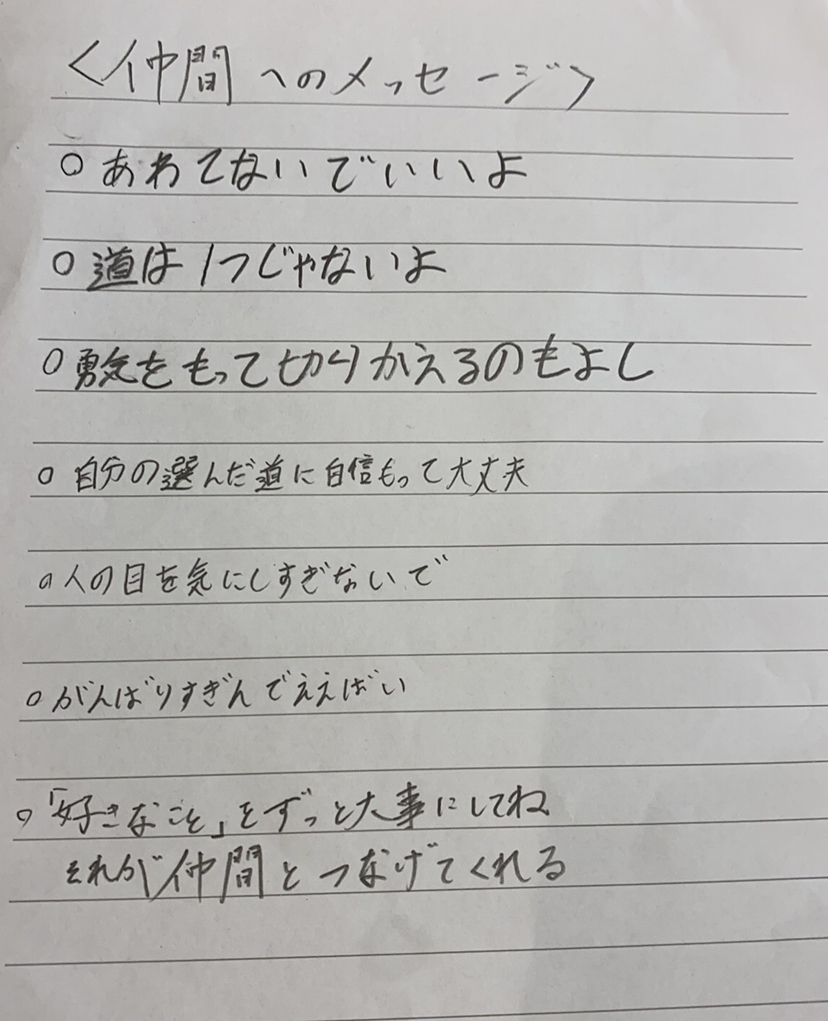 <仲間へのメッセージ>
○ あわてないでいいよ
○ 道は1つじゃないよ
○ 勇気をもって切りかえるのもよし
○ 自分の選んだ道に自信もって大丈夫
○ 人の目を気にしすぎないで
○ がんばりすぎんでええばい
○「好きなこと」をずっと大事にしてね
それが仲間とつなげてくれる